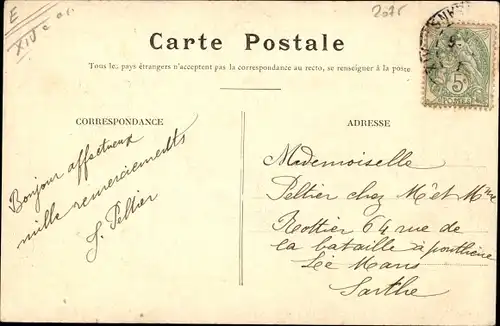 E
XIVe ar.
2075
Carte Postale
Tous les pays étrangers n'acceptent pas la correspondance au recto, se renseigner à la poste
CORRESPONDANCE
ADRESSE
Bonjour affectueux
mille remerciements
J. Peltier
Mademoiselle
Peltier chez Mr et Mme
Rottier 64 rue de
la bataille à
Lée Mans
Sarthe
5